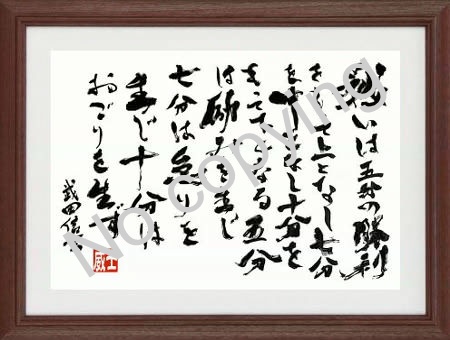 戦いは五分の勝利
をもって上となし七分
を中となし十分を
もって下となる五分
は励みを生じ
七分は怠りを
生じ十分は
おごりを生ず
武田信玄
No copying